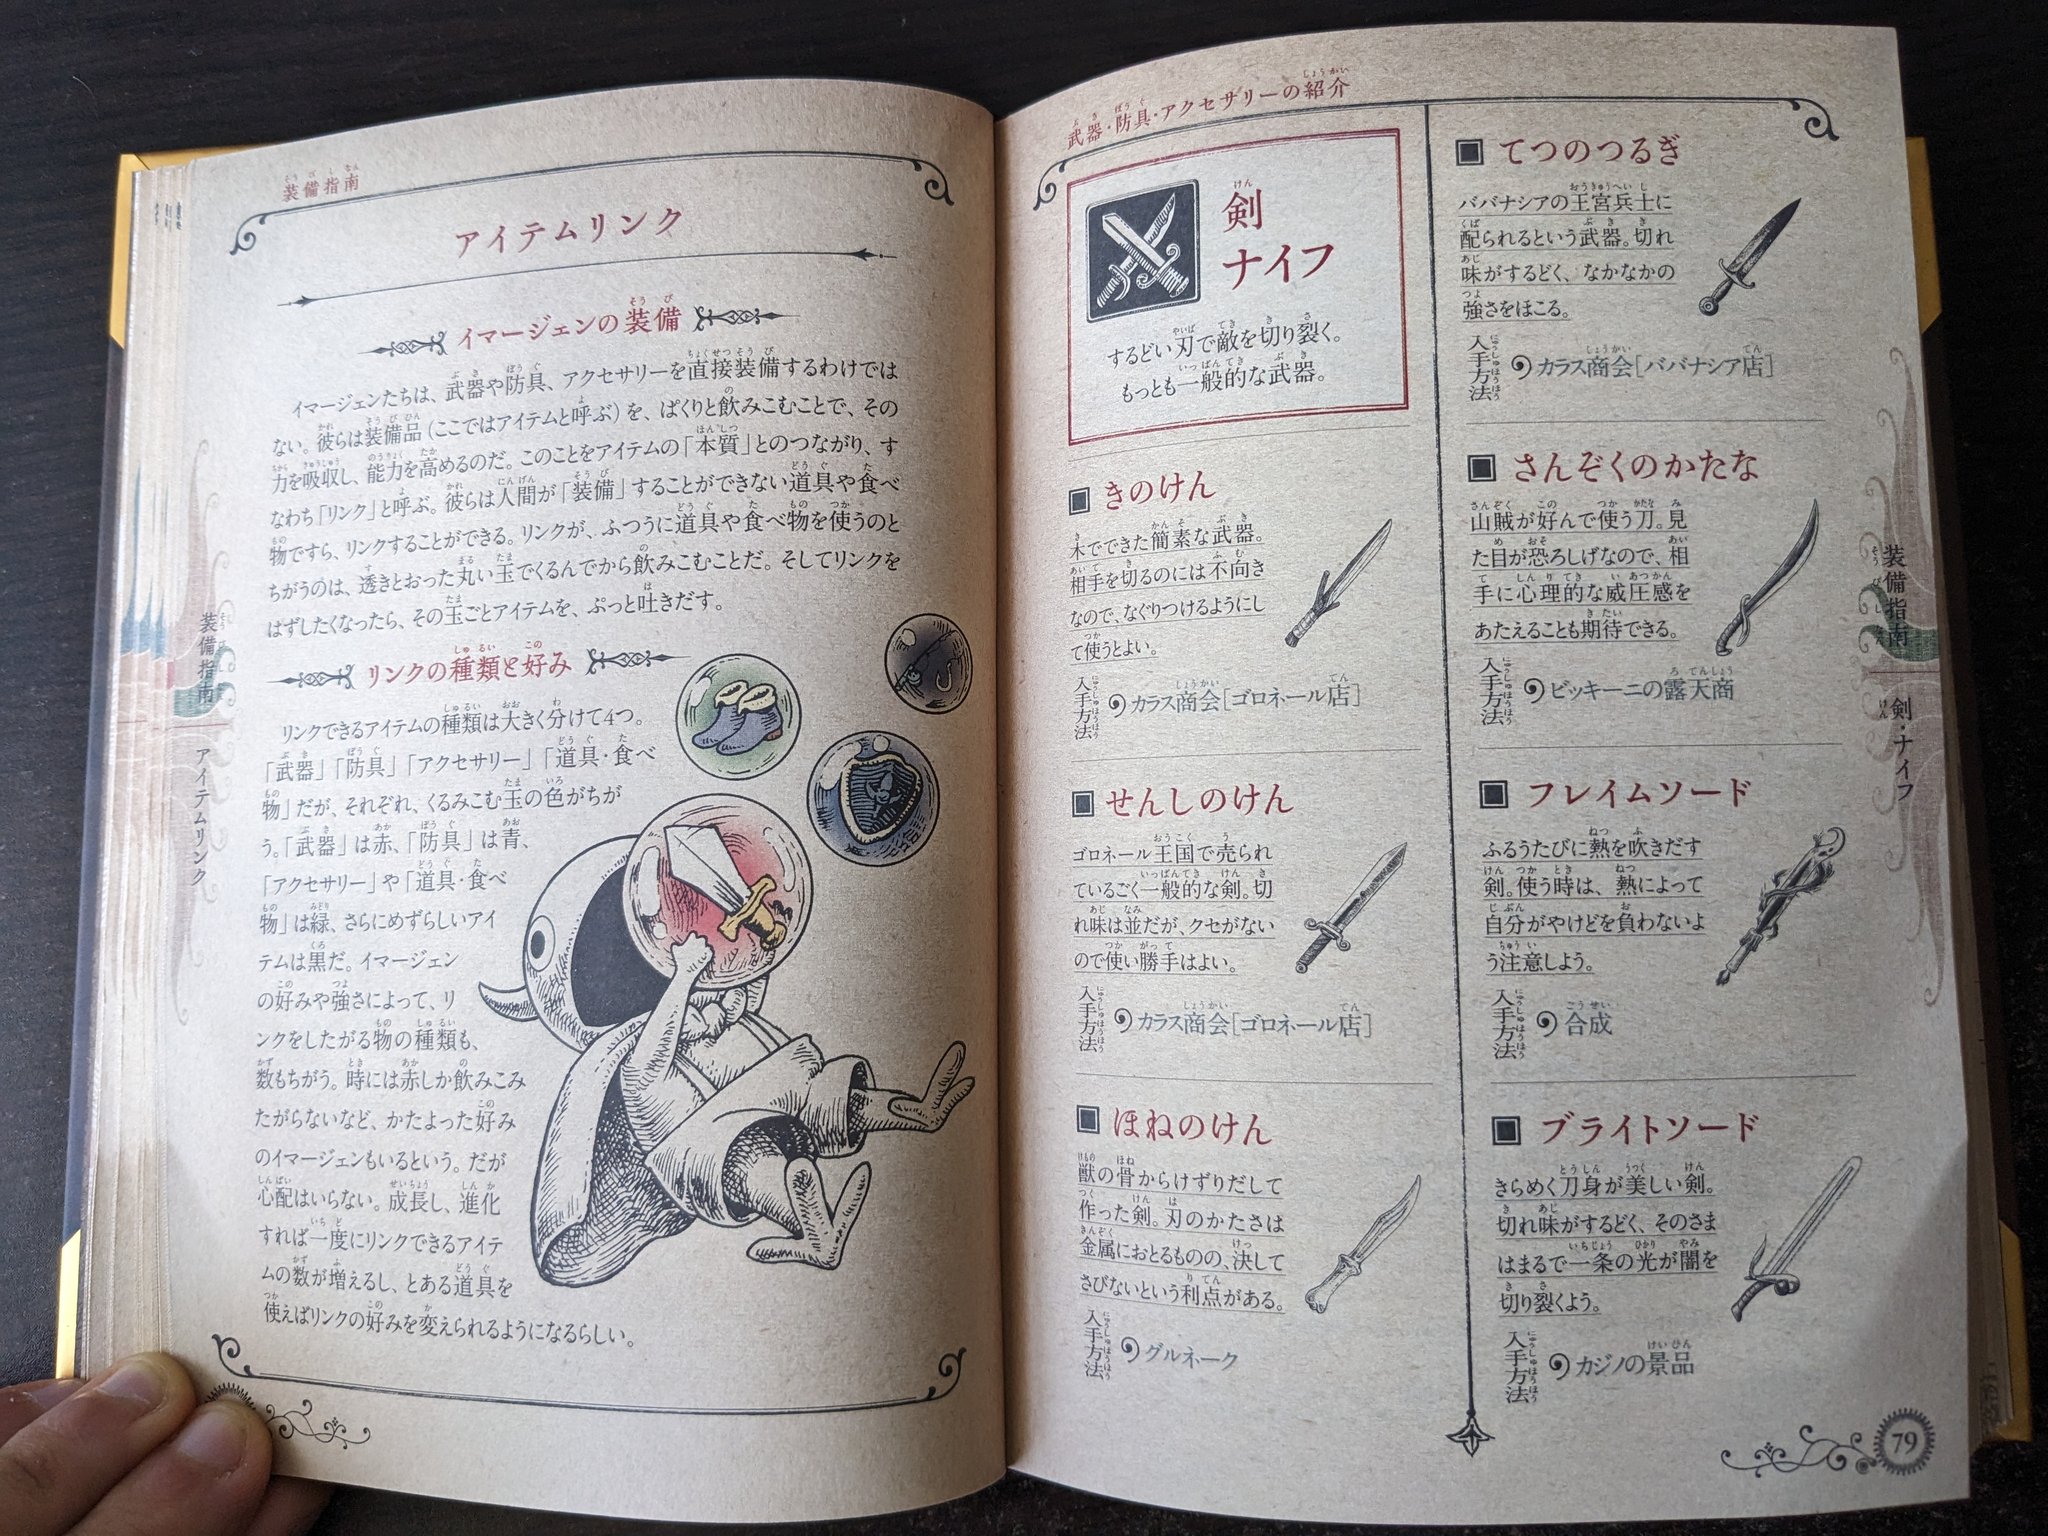 装備指南
アイテムリンク
イマージェンの装備
イマージェンたちは、武器や防具、アクセサリーを直接装備するわけでは
ない。彼らは装備品(ここではアイテムと呼ぶ)を、ぱくりと飲みこむことで、その
力を吸収し、能力を高めるのだ。このことをアイテムの「本質」とのつながり、す
なわち「リンク」と呼ぶ。彼らは人間が「装備」することができない道具や食べ
物ですら、リンクすることができる。リンクが、ふつうに道具や食べ物を使うのと
ちがうのは、透きとおった丸い玉でくるんでから飲みこむことだ。そしてリンクを
はずしたくなったら、その玉ごとアイテムを、ぷっと吐きだす。
リンクの種類と好み
リンクできるアイテムの種類は大きく分けて4つ。
「武器」「防具」「アクセサリー」「道具・食べ
物」だが、それぞれ、くるみこむ玉の色がちが
う。「武器」は赤、「防具」は青、
「アクセサリー」や「道具・食べ
物」は緑、さらにめずらしいアイ
テムは黒だ。イマージェン
の好みや強さによって、リ
ンクをしたがる物の種類も、
数もちがう。時には赤しか飲みこみ
たがらないなど、かたよった好み
のイマージェンもいるという。だが
心配はいらない。成長し、進化
すれば一度にリンクできるアイテ
ムの数が増えるし、とある道具を
使えばリンクの好みを変えられるようになるらしい。
装備指南
アイテムリンク
武器・防具・アクセサリーの紹介
剣
ナイフ
するどい刃で敵を切り裂く。
もっとも一般的な武器。
きのけん
木でできた簡素な武器。
相手を切るのには不向き
なので、なぐりつけるようにし
て使うとよい。
入手方法
カラス商会[ゴロネール店]
せんしのけん
ゴロネール王国で売られ
ているごく一般的な剣。切
れ味は並だが、クセがない
ので使い勝手はよい。
入手方法
カラス商会[ゴロネール店]
ほねのけん
獣の骨からけずりだして
作った剣。刃のかたさは
金属におとるものの、決して
さびないという利点がある。
入手方法
グルネーク
てつのつるぎ
ババナシアの王宮兵士に
配られるという武器。切れ
味がするどく、なかなかの
強さをほこる。
入手方法
カラス商会[ババナシア店]
さんぞくのかたな
山賊が好んで使う刀。見
た目が恐ろしげなので、相
手に心理的な威圧感を
あたえることも期待できる。
入手方法
ビッキーニの露天商
フレイムソード
ふるうたびに熱を吹きだす
剣。使う時は、熱によって
自分がやけどを負わないよ
う注意しよう。
入手方法
合成
ブライトソード
きらめく刀身が美しい剣。
切れ味がするどく、そのさま
はまるで一条の光が闇を
切り裂くよう。
入手方法
カジノの景品
装備指南
剣・ナイフ
79